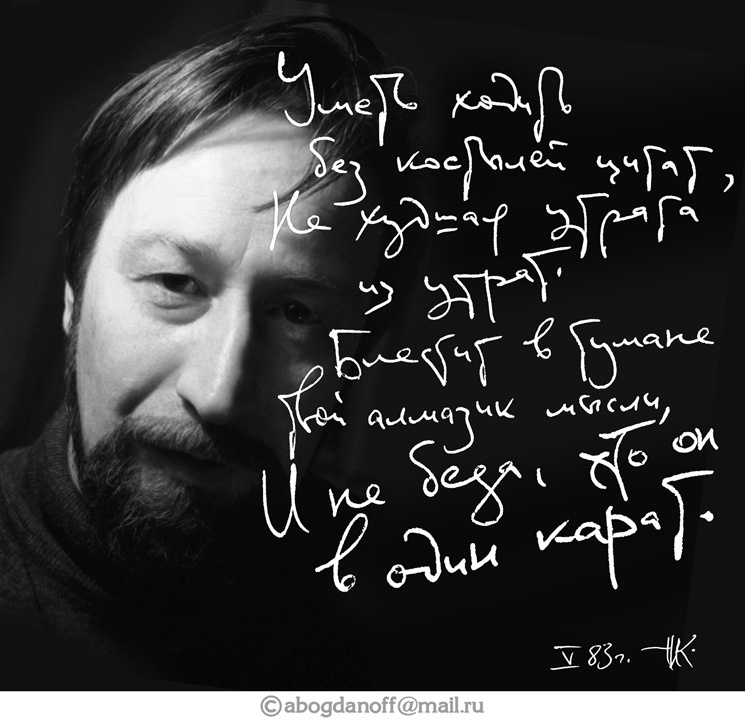 Умей ходить
без костылей цитат,
Не худшая утрата
из утрат.
Блестит в тумане
твой алмазик мысли,
И не беда, что он
в один карат.
V 83г. НК.
©abogdanoff@mail.ru